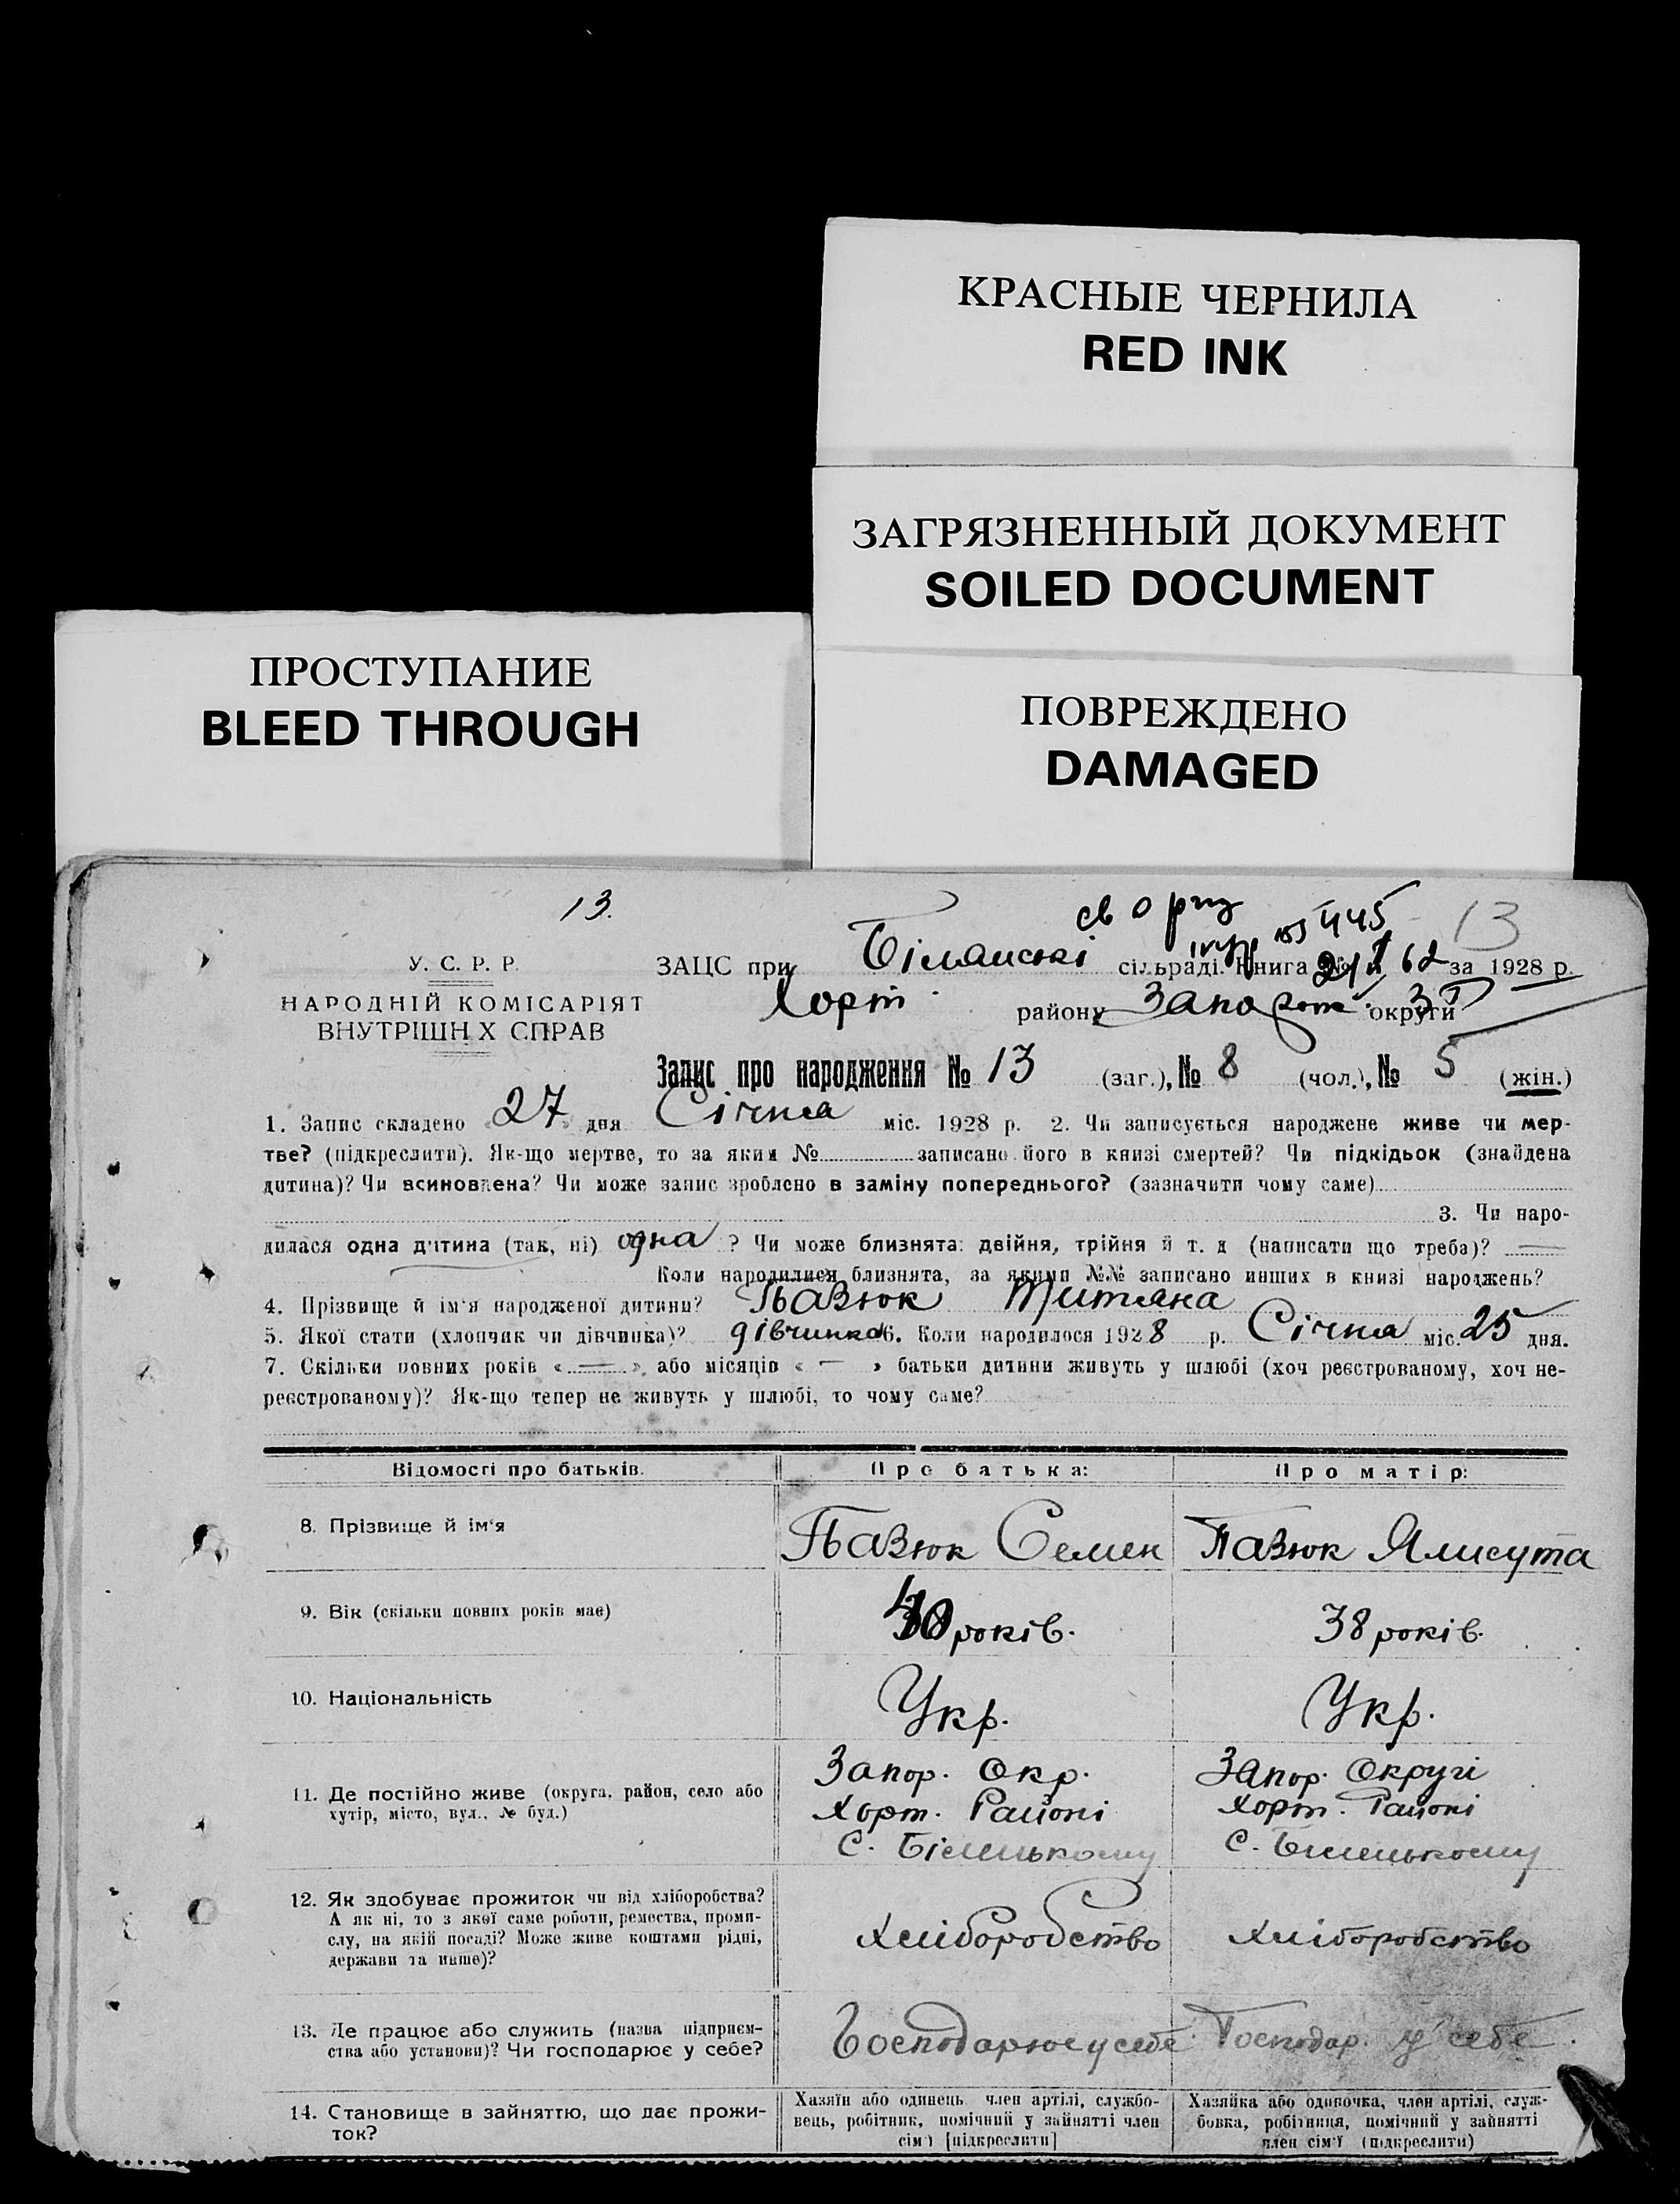 КРАСНЫЕ ЧЕРНИЛА
RED INK
ЗАГРЯЗНЕННЫЙ ДОКУМЕНТ
SOILED DOCUMENT
ПРОСТУПАНИЕ
BLEED THROUGH
ПОВРЕЖДЕНО
DAMAGED
13.
445
13
У. С. Р. Р.
НАРОДНІЙ КОМІСАРІЯТ
ВНУТРІШН Х СПРАВ
ЗАЦС при сільраді. Книга № за 1928 р.
Хорт. району Запорож. округи
Запис про народження № 13 (заг.), № 8 (чол.), № 5 (жін.)
1. Запис складено «27» дня Січня міс. 1928 р. 2. Чи записується народжене живе чи мер-
тве? (підкреслити). Як-що мертве, то за яким № записано його в книзі смертей? Чи підкідьок (знайдена
дитина)? Чи всиновлена? Чи може запис зроблено в заміну попереднього? (зазначити чому саме)
3. Чи наро-
дилася одна дитина (так, ні) одна ? Чи може близнята: двійня, трійня й т. д (написати що треба)? —
Коли народилися близнята, за якими №№ записано инших в книзі народжень?
4. Прізвище й ім'я народженої дитини? Павюк Титяна
5. Якої стати (хлопчик чи дівчинка)? дівчинка 6. Коли народилося 1928 р. Січня міс. 25 дня.
7. Скільки повних років « — », або місяців « — » батьки дитини живуть у шлюбі (хоч реєстрованому, хоч не-
реєстрованому)? Як-що тепер не живуть у шлюбі, то чому саме?
Відомості про батьків. Про батька: Про матір:
8. Прізвище й ім'я Павюк Семен Павюк Ялисута
9. Вік (скільки повних років має) 40 років. 38 років.
10. Національність Укр. Укр.
11. Де постійно живе (округа, район, село або
хутір, місто, вул., № буд.)
Запор. Окр. Запор. Округі
Хорт. Районі Хорт. Районі
С. С.
12. Як здобуває прожиток чи від хліборобства?
А як ні, то з якої саме роботи, ремества, проми-
слу, на якій посаді? Може живе коштами рідні,
держави та инше)?
Хліборобство Хліборобство
13. Де працює або служить (назва підприєм-
ства або установи)? Чи господарює у себе?
Господарює у себе Господар. у себе.
14. Становище в зайняттю, що дає прожи-
ток?
Хазяїн або одинець член артілі, службо-
вець, робітник, помічний у зайнятті член
сім'ї [підкреслити]
Хазяйка або одиночка, член артілі, служ-
бовка, робітниця, помічний у зайнятті
член сім'ї (підкреслити)